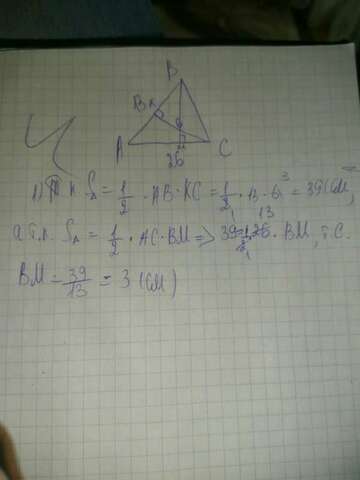 B
A
C
26
1) S△ = 1/2 · AB · KC = 1/2 · 13 · 6 = 39 (см),
а т.к. S△ = 1/2 · AC · BM => 39 = 1/2 · 26 · BM, т.е.
BM = 39/13 = 3 (см)